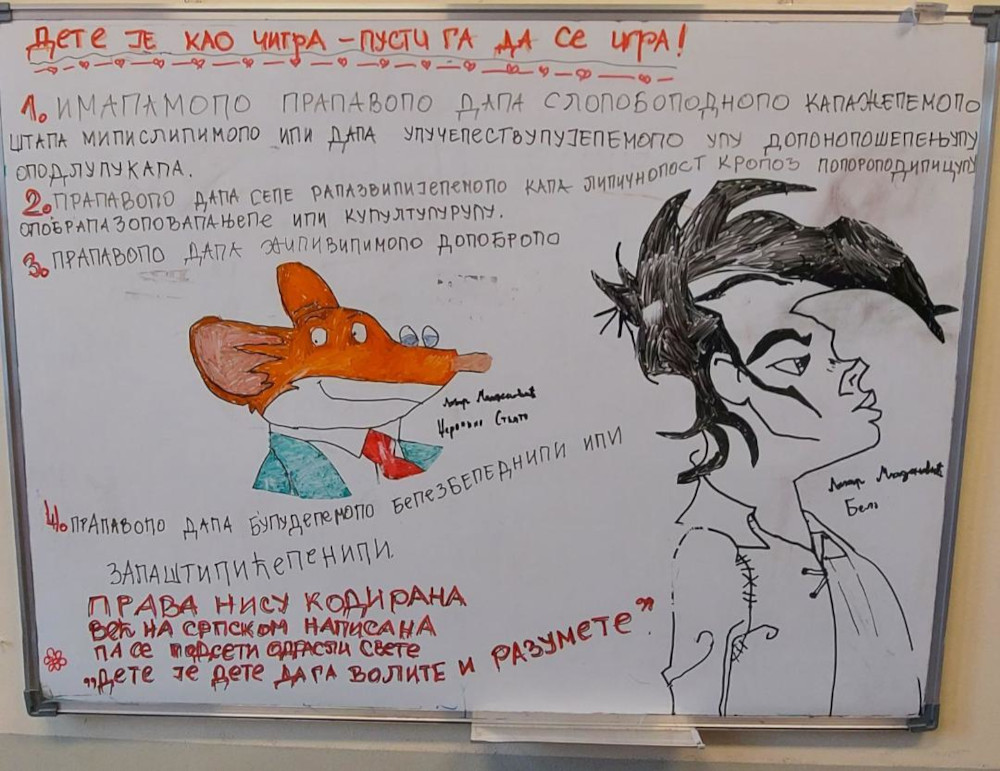 ДЕТЕ ЈЕ КАО ЧИГРА – ПУСТИ ГА ДА СЕ ИГРА!
1. ИМАПАМОПО ПРАПАВОПО ДАПА СЛОПОБОПОДНОПО КАПАЖЕПЕМОПО
ШТАПА МИПИСЛИПИМОПО ИПИ ДАПА УПУЧЕПЕСТВУПУЈЕПЕМОПО УПУ ДОПОНОПОШЕПЕЊУПУ
ОПОДЛУПУКАПА.
2. ПРАПАВОПО ДАПА СЕПЕ РАПАЗВИПИЈЕПЕМОПО КАПА ЛИПИЧНОПОСТ КРОПОЗ ПОПОРОПОДИПИЦУПУ
ОПОБРАПАЗОПОВАПАЊЕПЕ ИПИ КУПУЛТУПУРУПУ.
3. ПРАПАВОПО ДАПА ЖИПИВИПИМОПО ДОПОБРОПО
Лазар
Стилтон
4. ПРАПАВОПО ДАПА БУПУДЕПЕМОПО БЕПЕЗБЕПЕДНИПИ ИПИ
ЗАПАШТИПИЋЕПЕНИПИ.
Лазар
ПРАВА НИСУ КОДИРАНА
ВЕЋ НА СРПСКОМ НАПИСАНА
ПА СЕ ПОДСЕТИ ОДРАСЛИ СВЕТЕ
„ДЕТЕ ЈЕ ДЕТЕ ДА ГА ВОЛИТЕ И РАЗУМЕТЕ”.